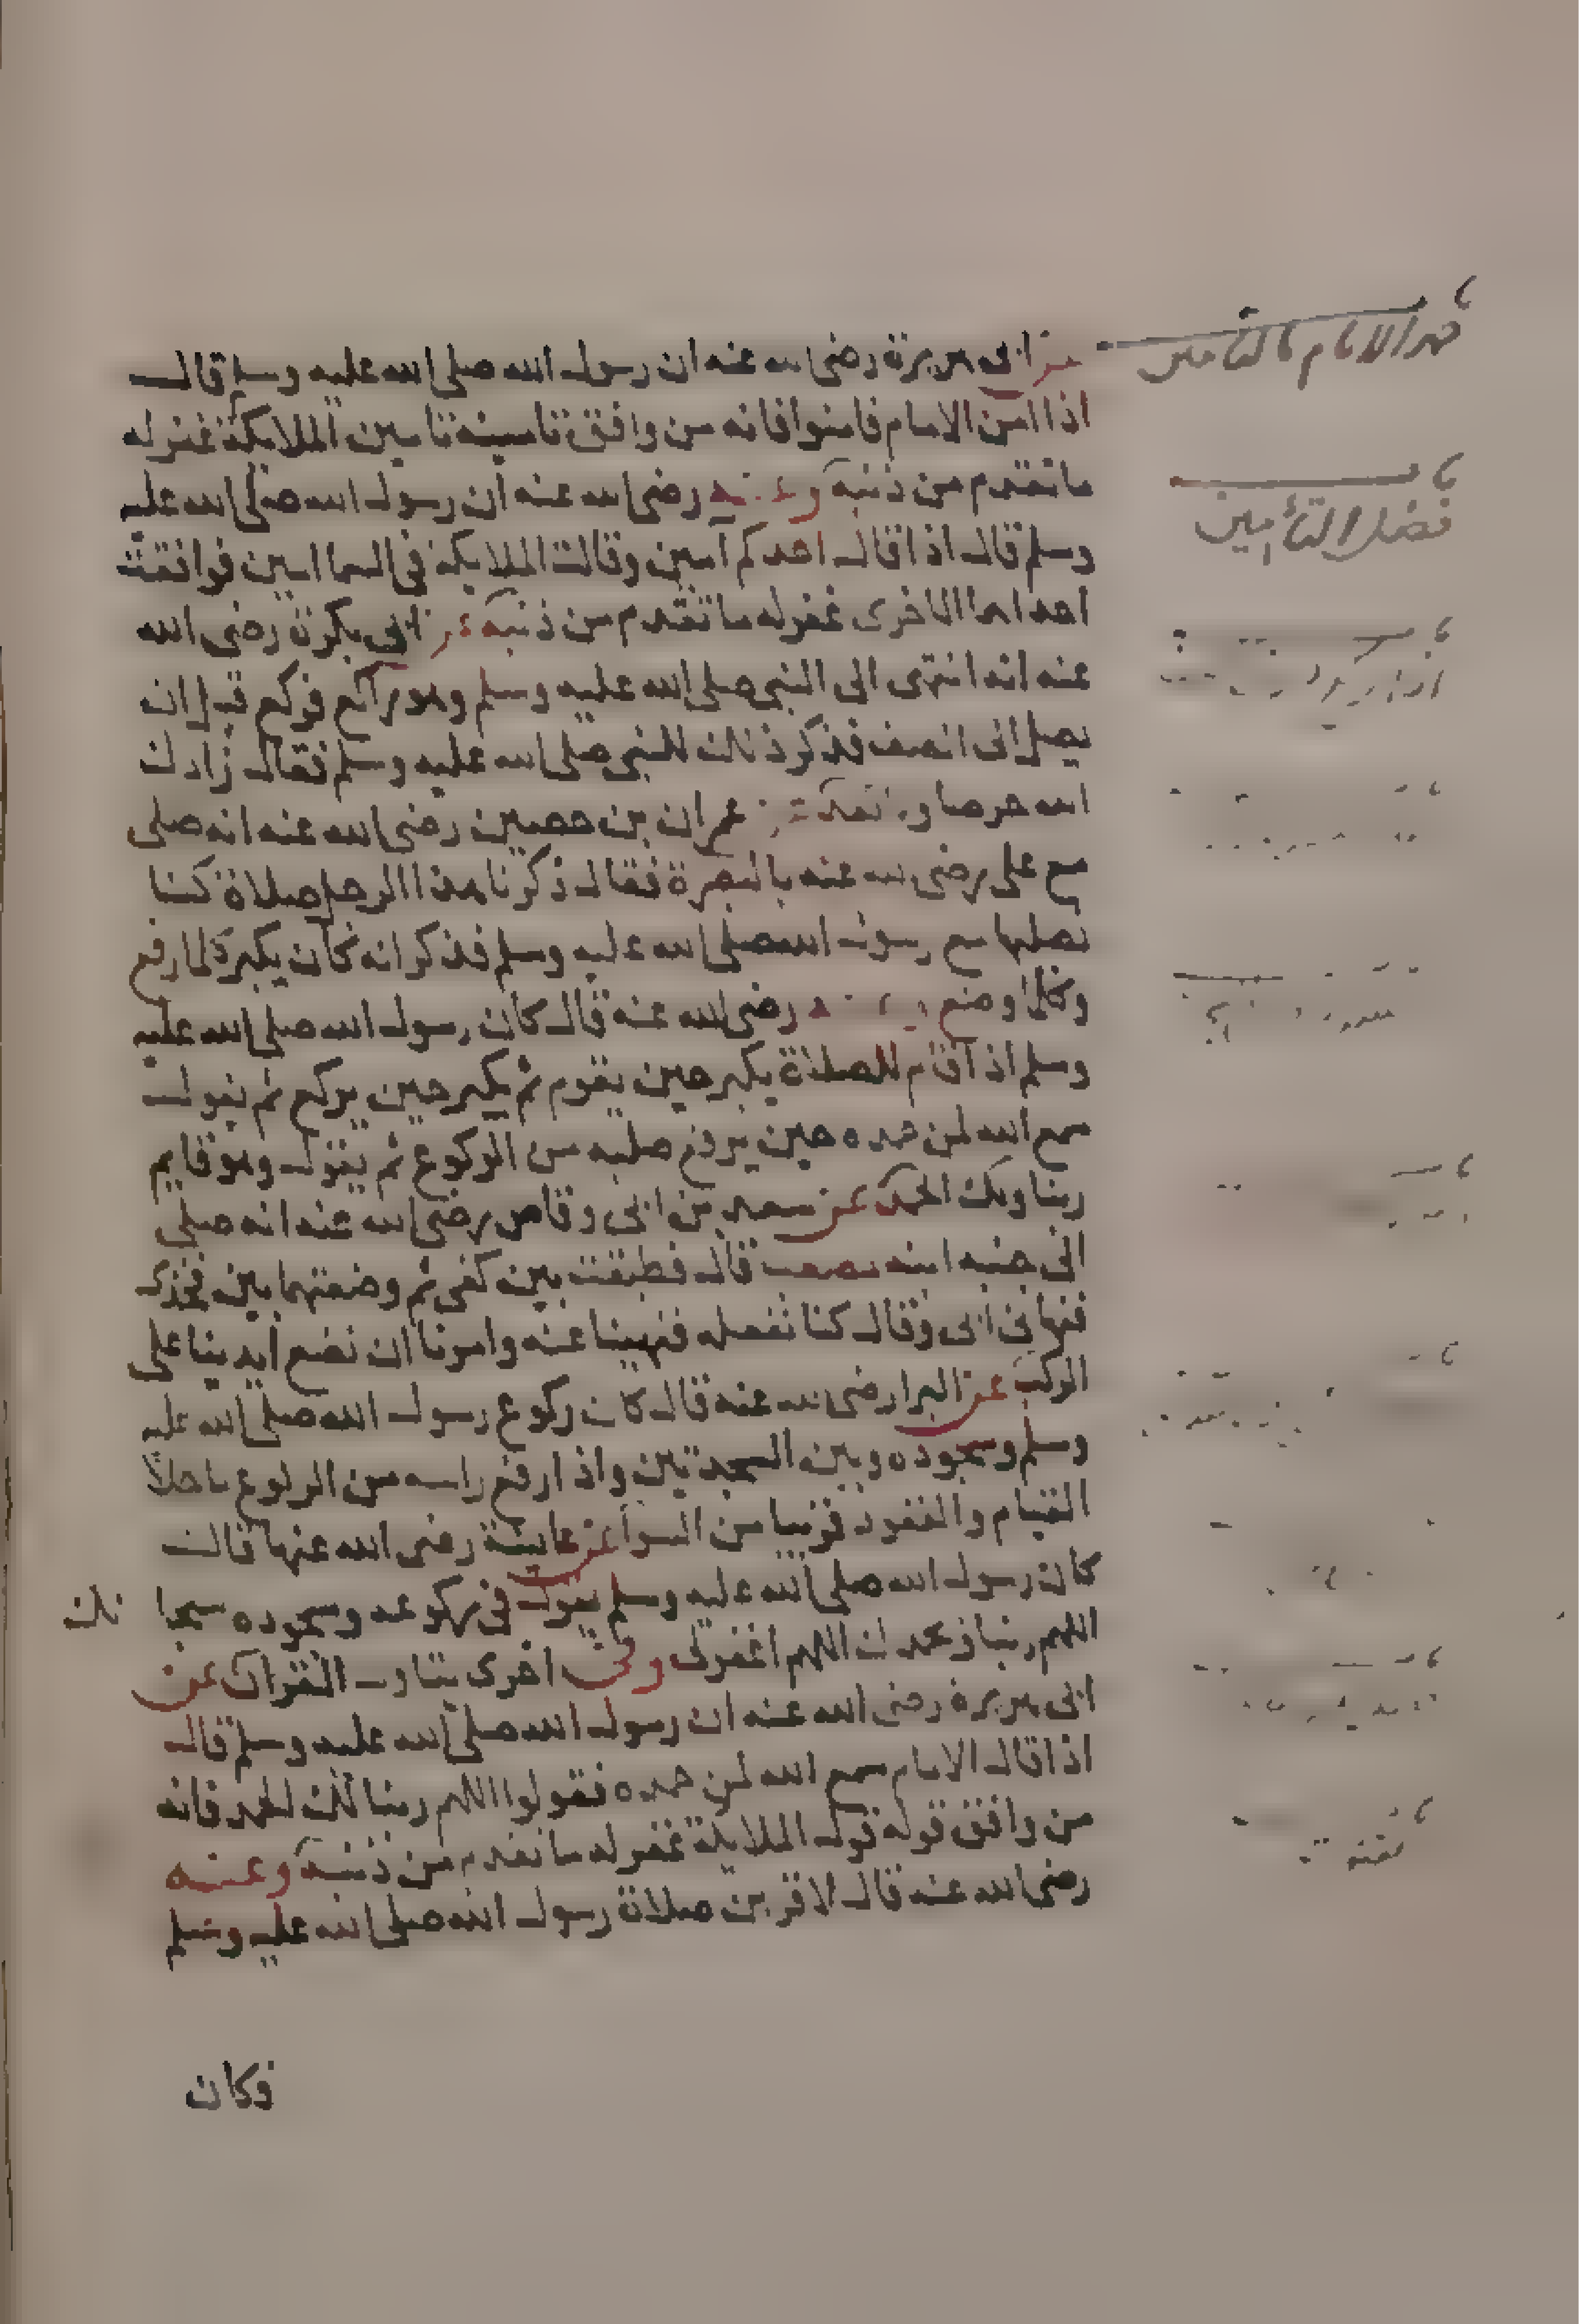 عن ابى هريرة رضى الله عنه ان رسول الله صلى الله عليه وسلم قال
اذا امن الامام فامنوا فانه من وافق تامينه تامين الملايكة غفر له
ما تقدم من ذنبه وعنه رضى الله عنه ان رسول الله صلى الله عليه
وسلم قال اذا قال احدكم آمين وقالت الملايكة فى السما امين فوافقت
احداهما الاخرى غفر له ما تقدم من ذنبه عن ابى بكرة رضى الله
عنه انه انتهى الى النبى صلى الله عليه وسلم وهو راكع فركع قبل ان
يصل الى الصف فذكر ذلك للنبى صلى الله عليه وسلم فقال زادك
الله حرصا ولا تعد عن عمران بن حصين رضى الله عنه انه صلى
مع على رضى الله عنه بالبصرة فقال ذكرنا هذا الرجل صلاة كنا
نصليها مع رسول الله صلى الله عليه وسلم فذكر انه كان يكبر كلما رفع
وكلما وضع رضى الله عنه قال كان رسول الله صلى الله عليه
وسلم اذا قام للصلاة يكبر حين يقوم ثم يكبر حين يركع ثم يقول
سمع الله لمن حمده حين يرفع صلبه من الركوع ثم يقول وهو قايم
ربنا ولك الحمد عن سعد بن ابى وقاص رضى الله عنه انه صلى
الى جنبه ابنه مصعب قال فطبقت بين كفى ثم وضعتهما بين فخذى
فنهانى ابى وقال كنا نفعله فنهينا عنه وامرنا ان نضع ايدينا على
الركب عن البرا رضى الله عنه قال كان ركوع رسول الله صلى الله عليه
وسلم وسجوده وبين السجدتين واذا رفع راسه من الركوع ما خلا
القيام والقعود قريبا من السوا عن عايشة رضى الله عنها قالت
كان رسول الله صلى الله عليه وسلم يقول فى ركوعه وسجوده سبحا نك
اللهم ربنا وبحمدك اللهم اغفرلى وفى اخرى يتاول القران عن
ابى هريرة رضى الله عنه ان رسول الله صلى الله عليه وسلم قال
اذا قال الامام سمع الله لمن حمده فقولوا اللهم ربنا لك الحمد فانه
من وافق قوله قول الملايكة غفر له ما تقدم من ذنبه وعنه
رضى الله عنه قال لاقربن صلاة رسول الله صلى الله عليه وسلم
فكان
باب
جهر الامام بالتامين
باب
فضل التأمين